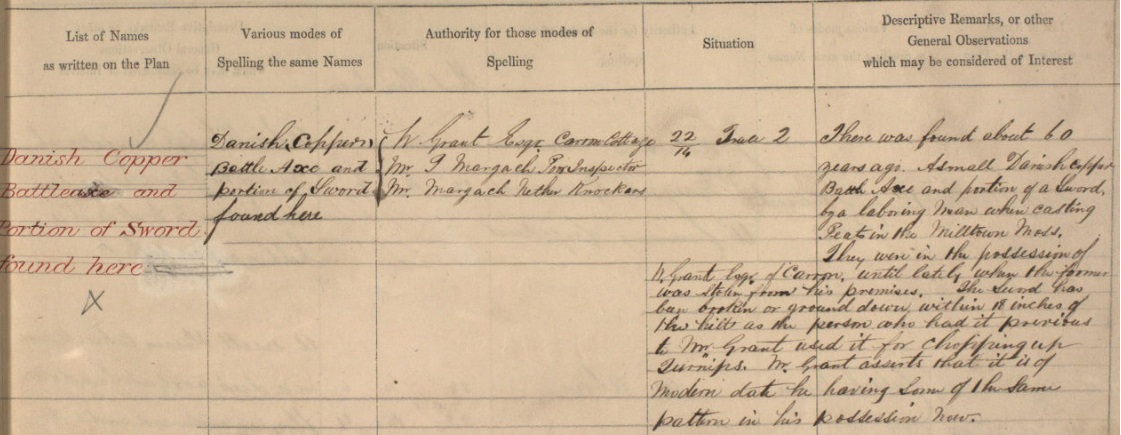 List of Names
as written on the Plan
Various modes of
Spelling the same Names
Authority for those modes of
Spelling
Situation
Descriptive Remarks, or other
General Observations
which may be considered of Interest
Danish Copper
Battleaxe and
Portion of Sword
found here
Danish Copper
Battle Axe and
portion of Sword
found here
W. Grant Esqr. Carron Cottage
Mr. Margach Poor Inspector
Mr. Margach Nether Knockers
22/14 Trace 2
There was found about 60
years ago. A small Danish copper
Battle Axe and portion of a Sword,
by a laboring Man when casting
Peats in the Milltown Moss.
They were in the possession of
W. Grant Esqr. of Carron, until lately when the former
was stolen from his premises. The Sword has
been broken or ground down within 18 inches of
the hilt as the person who had it previous
to Mr. Grant used it for chopping up
Turnips. Mr. Grant asserts that it is of
Modern date he having some of the same
pattern in his possession now.